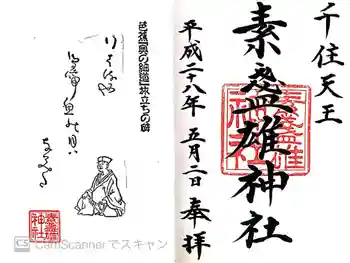 千住天王
素盞雄神社
平成二十八年 五月二日 奉拝
芭蕉翁奥の細道旅立ちの碑
行はるや
鳥啼魚の目は
なみた
素盞雄神社
CS CamScannerでスキャン